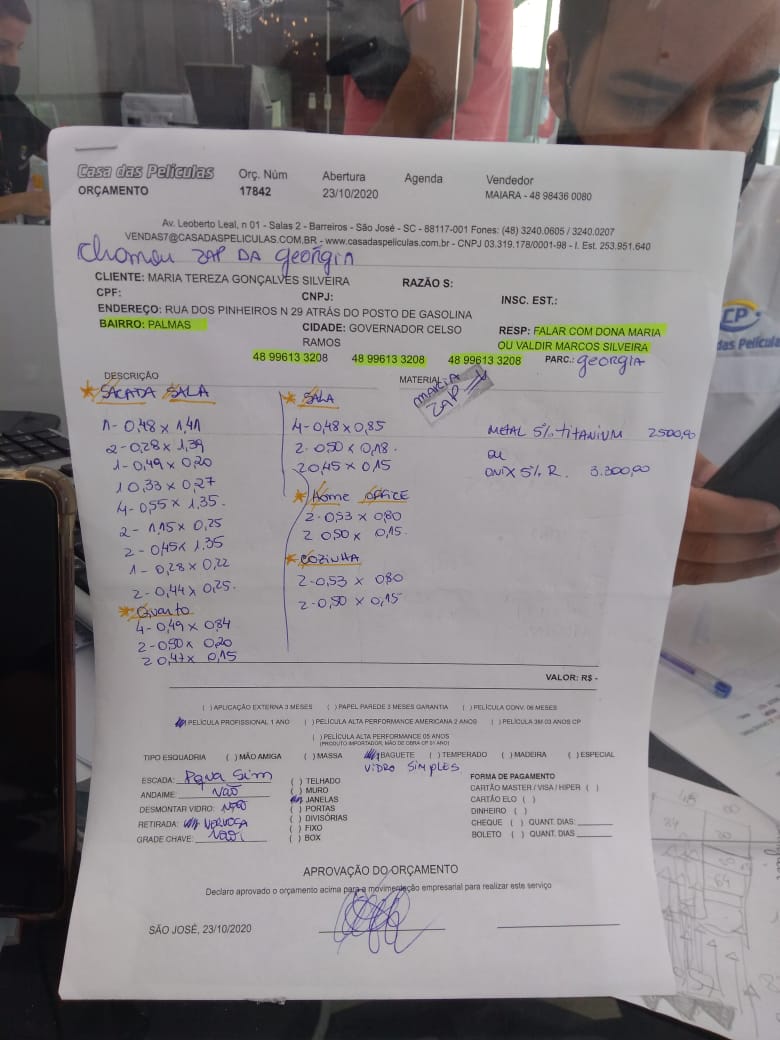 Casa das Películas
ORÇAMENTO
Orç. Núm
17842
Abertura
23/10/2020
Agenda
Vendedor
MAIARA - 48 98436 0080
Av. Leoberto Leal, n 01 - Salas 2 - Barreiros - São José - SC - 88117-001 Fones: (48) 3240.0605 / 3240.0207
VENDAS7@CASADASPELICULAS.COM.BR - www.casadaspeliculas.com.br - CNPJ 03.319.178/0001-98 - I. Est. 253.951.640
chamou ZAP DA georgia
CLIENTE: MARIA TEREZA GONÇALVES SILVEIRA
RAZÃO S:
CPF:
CNPJ:
INSC. EST.:
ENDEREÇO: RUA DOS PINHEIROS N 29 ATRÁS DO POSTO DE GASOLINA
BAIRRO: PALMAS
CIDADE: GOVERNADOR CELSO RAMOS
RESP: FALAR COM DONA MARIA
OU VALDIR MARCOS SILVEIRA
48 99613 3208 48 99613 3208 48 99613 3208
PARC.: georgia
DESCRIÇÃO
MATERIAL
MARCIA
ZAP
* SACADA SALA
1-0,48 x 1,41
2-0,28 x 1,39
1-0,49 x 0,20
1 0,33 x 0,27
4-0,55 x 1,35.
2-1,15 x 0,25
2-0,45 x 1,35
1-0,28 x 0,22
2-0,44 x 0,25.
* Quarto
4-0,49 x 0,84
2-0,50 x 0,20
2 0,47 x 0,15
* SALA
4-0,48 x 0,85
2-0,50 x 0,18.
2 0,45 x 0,15
* Home OFFICE
2-0,53 x 0,80
2 0,50 x 0,15.
* COZINHA
2-0,53 x 0,80
2-0,50 x 0,15
METAL 5% TITANIUM 2500,00
OU
ONIX 5% R. 3.300,00
VALOR: R$ -
( ) APLICAÇÃO EXTERNA 3 MESES ( ) PAPEL PAREDE 3 MESES GARANTIA ( ) PELÍCULA CONV. 06 MESES
( ) PELÍCULA PROFISSIONAL 1 ANO ( ) PELÍCULA ALTA PERFORMANCE AMERICANA 2 ANOS ( ) PELÍCULA 3M 03 ANOS CP
( ) PELÍCULA ALTA PERFORMANCE 05 ANOS
(PRODUTO IMPORTADOR, MÃO DE OBRA CP 01 ANO)
TIPO ESQUADRIA ( ) MÃO AMIGA ( ) MASSA ( ) BAGUETE ( ) TEMPERADO ( ) MADEIRA ( ) ESPECIAL
VIDRO SIMPLES
ESCADA: Pqna Sim
ANDAIME: NÃO
DESMONTAR VIDRO: NÃO
RETIRADA: NERVOSA
GRADE CHAVE: NÃO
( ) TELHADO
( ) MURO
( ) JANELAS
( ) PORTAS
( ) DIVISÓRIAS
( ) FIXO
( ) BOX
FORMA DE PAGAMENTO
CARTÃO MASTER / VISA / HIPER ( )
CARTÃO ELO ( )
DINHEIRO ( )
CHEQUE ( ) QUANT. DIAS:
BOLETO ( ) QUANT. DIAS
APROVAÇÃO DO ORÇAMENTO
Declaro aprovado o orçamento acima para a movimenteção empresarial para realizar este serviço
SÃO JOSÉ, 23/10/2020
CP
das Película